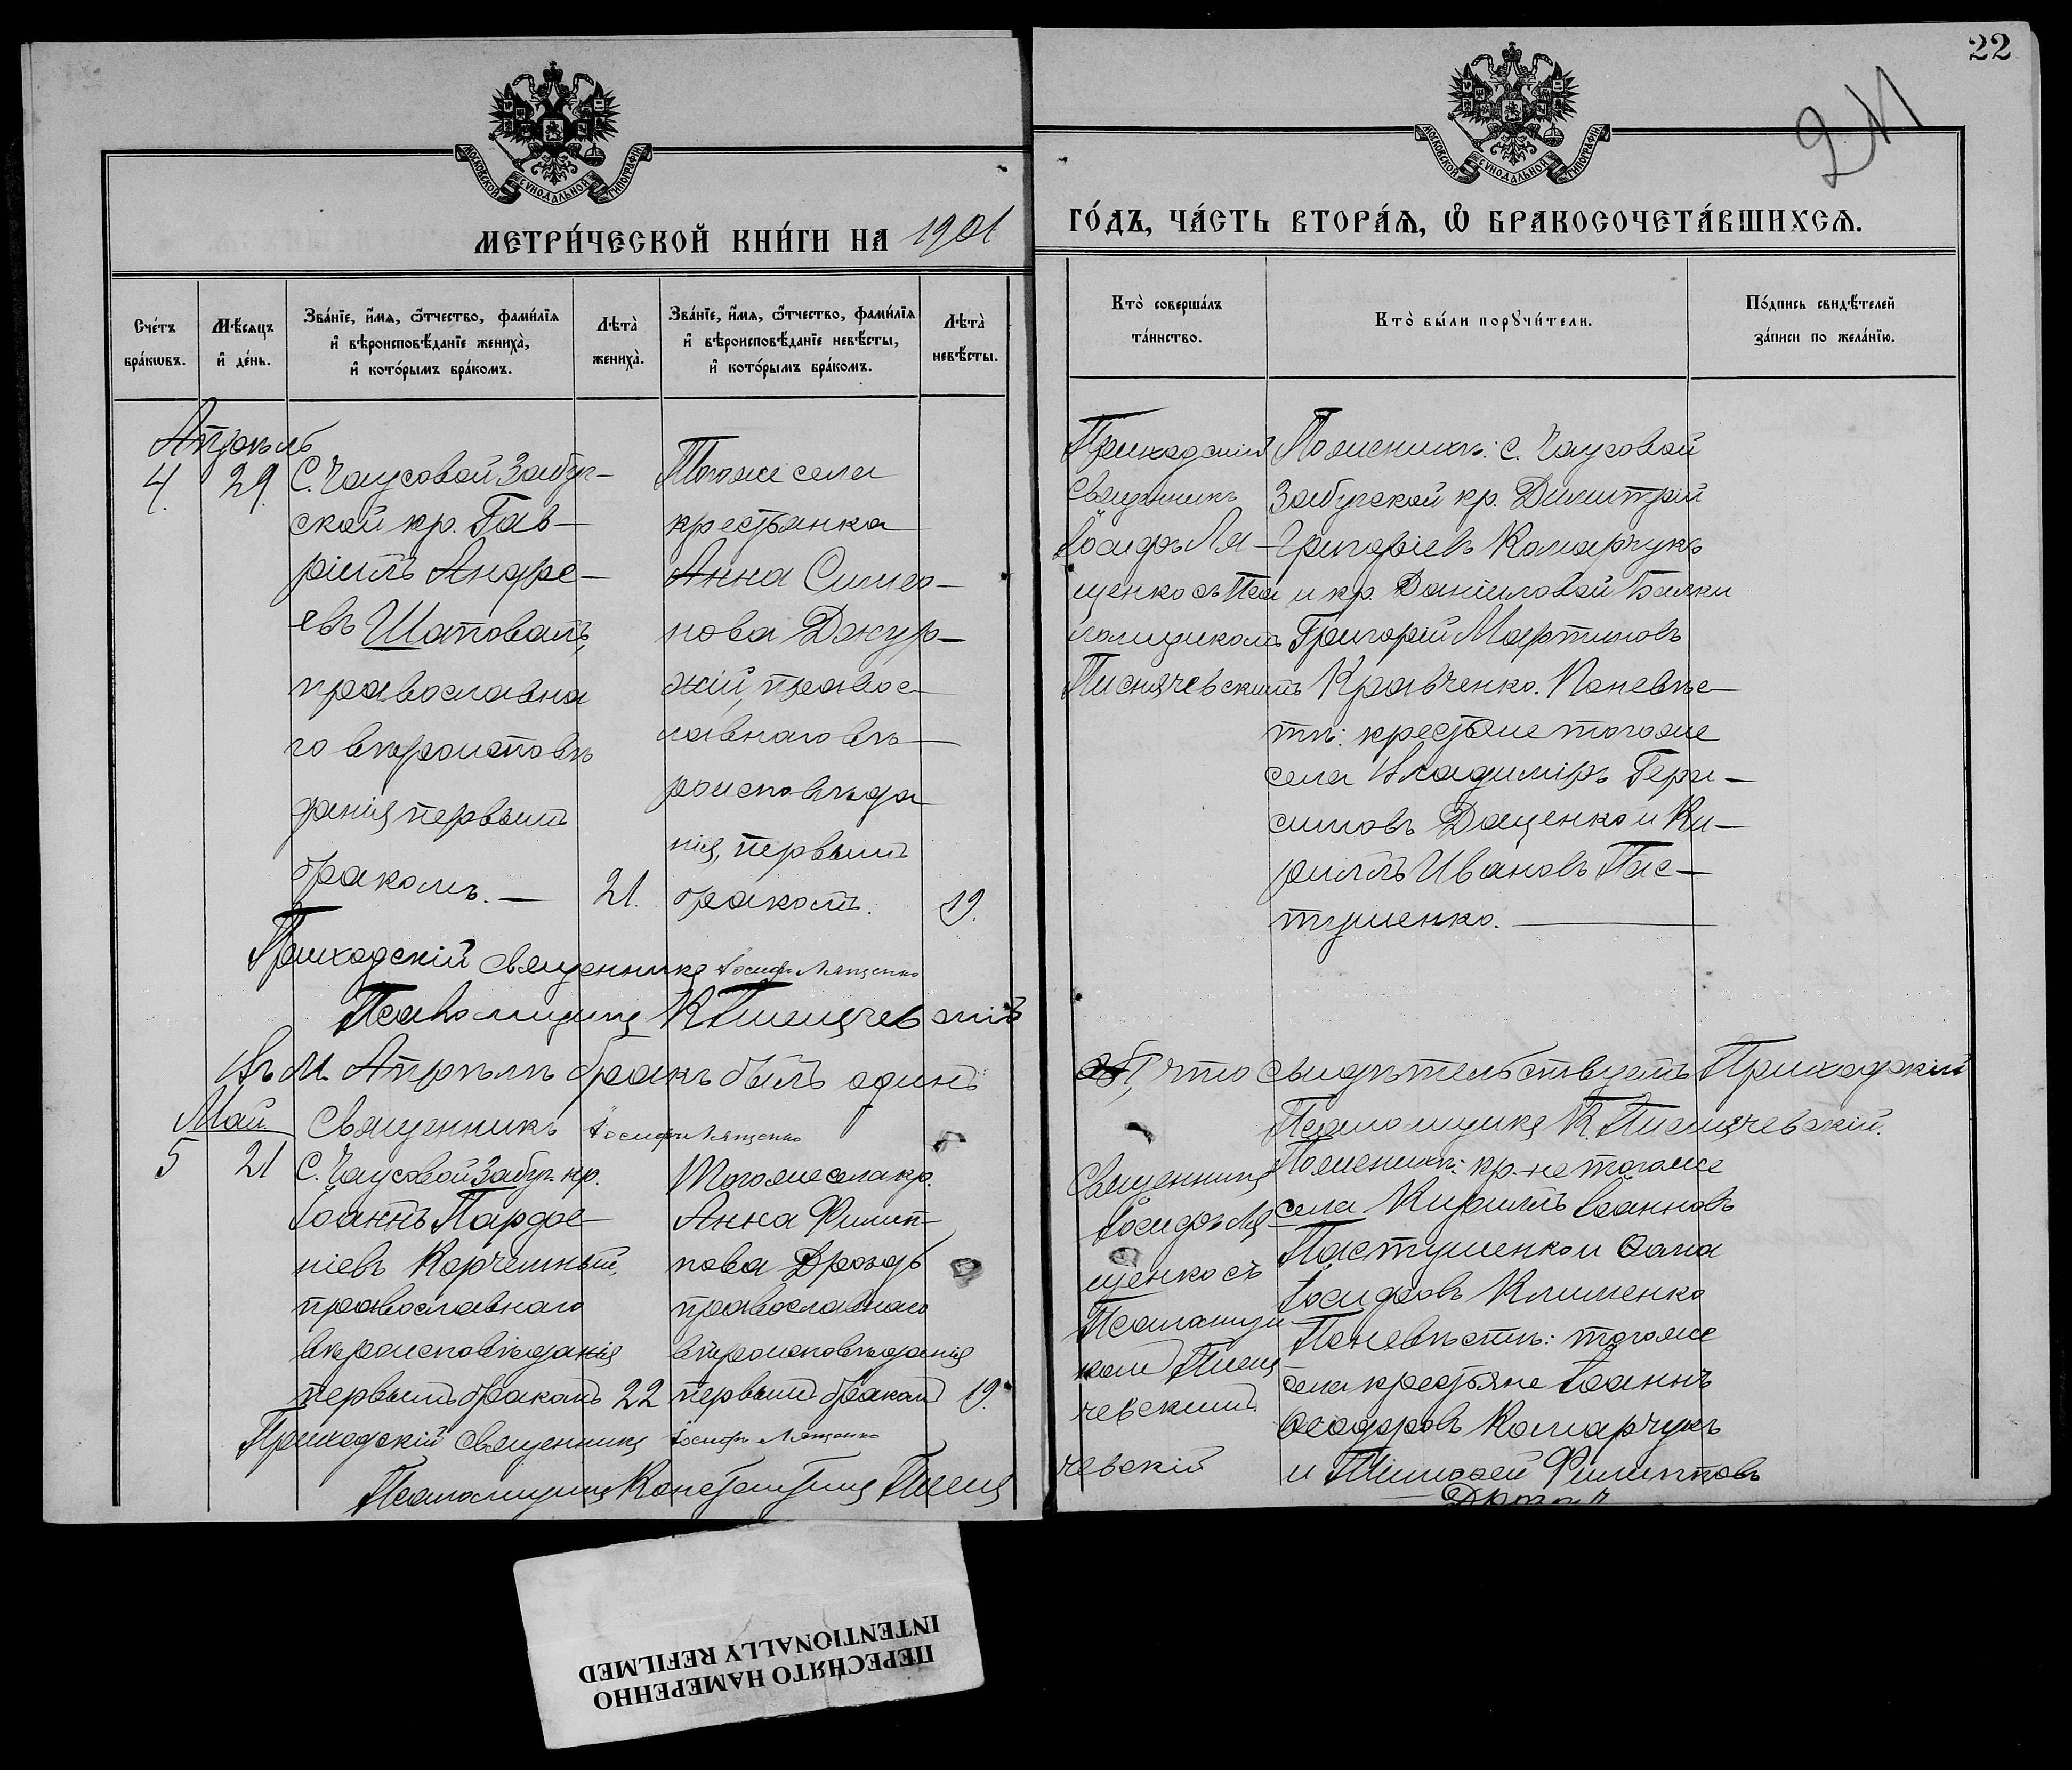 22
211
МОСКОВСКОЙ СѴНОДАЛЬНОЙ ТИПОГРАФІИ
МОСКОВСКОЙ СѴНОДАЛЬНОЙ ТИПОГРАФІИ
МЕТРИ́ЧЕСКОЙ КНИ́ГИ НА 1901
ГО́ДЪ, ЧА́СТЬ ВТОРА́Ѧ, Ѡ БРАКОСОЧЕТА́ВШИХСѦ.
Сче́тъ бра́кѡвъ.
Мѣ́сяцъ и҆ де́нь.
Зва́нїе, и҆́мѧ, ѻ҆́тчество, фами́лїѧ
и҆ вѣроисповѣ́данїе жениха̀,
и҆ кото́рымъ бра́комъ.
Лѣта̀ жениха̀.
Зва́нїе, и҆́мѧ, ѻ҆́тчество, фами́лїѧ
и҆ вѣроисповѣ́данїе невѣ́сты,
и҆ кото́рымъ бра́комъ.
Лѣта̀ невѣ́сты.
Кто̀ соверша́лъ
та́инство.
Кто̀ бы́ли порꙋчи́тели.
По́дпись свидѣ́телей
за́писи по жела́нїю.
Апрѣль
4. 29.
С. Чаусовой Забуг-
ской кр. Гав-
ріилъ Андре-
евъ Шаповалъ,
православна
го вѣроисповѣ
данія первымъ
бракомъ. —
21.
Тогоже села
крестьянка
Анна Симео-
нова Джур-
жій, правос-
лавнаго вѣ-
роисповѣда
нія, первымъ
бракомъ.
19.
Приходскій
Священникъ
Іосифъ Ля-
щенко съ Пса
ломщикомъ
Писнячевскимъ
По женихѣ: с. Чаусовой
Забугской кр. Димитрій
Григоріевъ Комарчукъ
и кр. Даниловой Балки
Григорій Мартиновъ
Кравченко. По невѣс-
тѣ: крестьяне тогоже
села Владиміръ Гера-
симовъ Даценко и Ки-
риллъ Ивановъ Пас-
тушенко.
Приходскій Священникъ Іосифъ Лященко
Псаломщикъ К. Писнячевскій
Въ м. Апрѣлѣ бракъ былъ одинъ
что свидѣтельствуетъ Приходскій
Священникъ Іосифъ Лященко
Псаломщикъ К. Писнячевскій.
Май.
5 21
С. Чаусовой Забуг. кр.
Іоаннъ Пардо-
ніевъ Корчемный,
православнаго
вѣроисповѣданія
первымъ бракомъ
22
Тогоже села кр.
Анна Филип-
пова Дроздъ
православнаго
вѣроисповѣданія
первымъ бракомъ
19.
Священникъ
Іосифъ Ля-
щенко съ
Псаломщи
комъ Писня
чевскимъ
По женихѣ: кр-не тогоже
села Кириллъ Іоанновъ
Пастушенко и Ѳома
Іосифовъ Клименко
По невѣстѣ: тогоже
села крестьяне Іоаннъ
Ѳеодоровъ Комарчукъ
и Тимофей Филипповъ
Приходскій Священникъ Іосифъ Лященко
Псаломщикъ Константинъ Писня
чевскій
ПЕРЕСНЯТО НАМЕРЕННО
INTENTIONALLY REFILMED